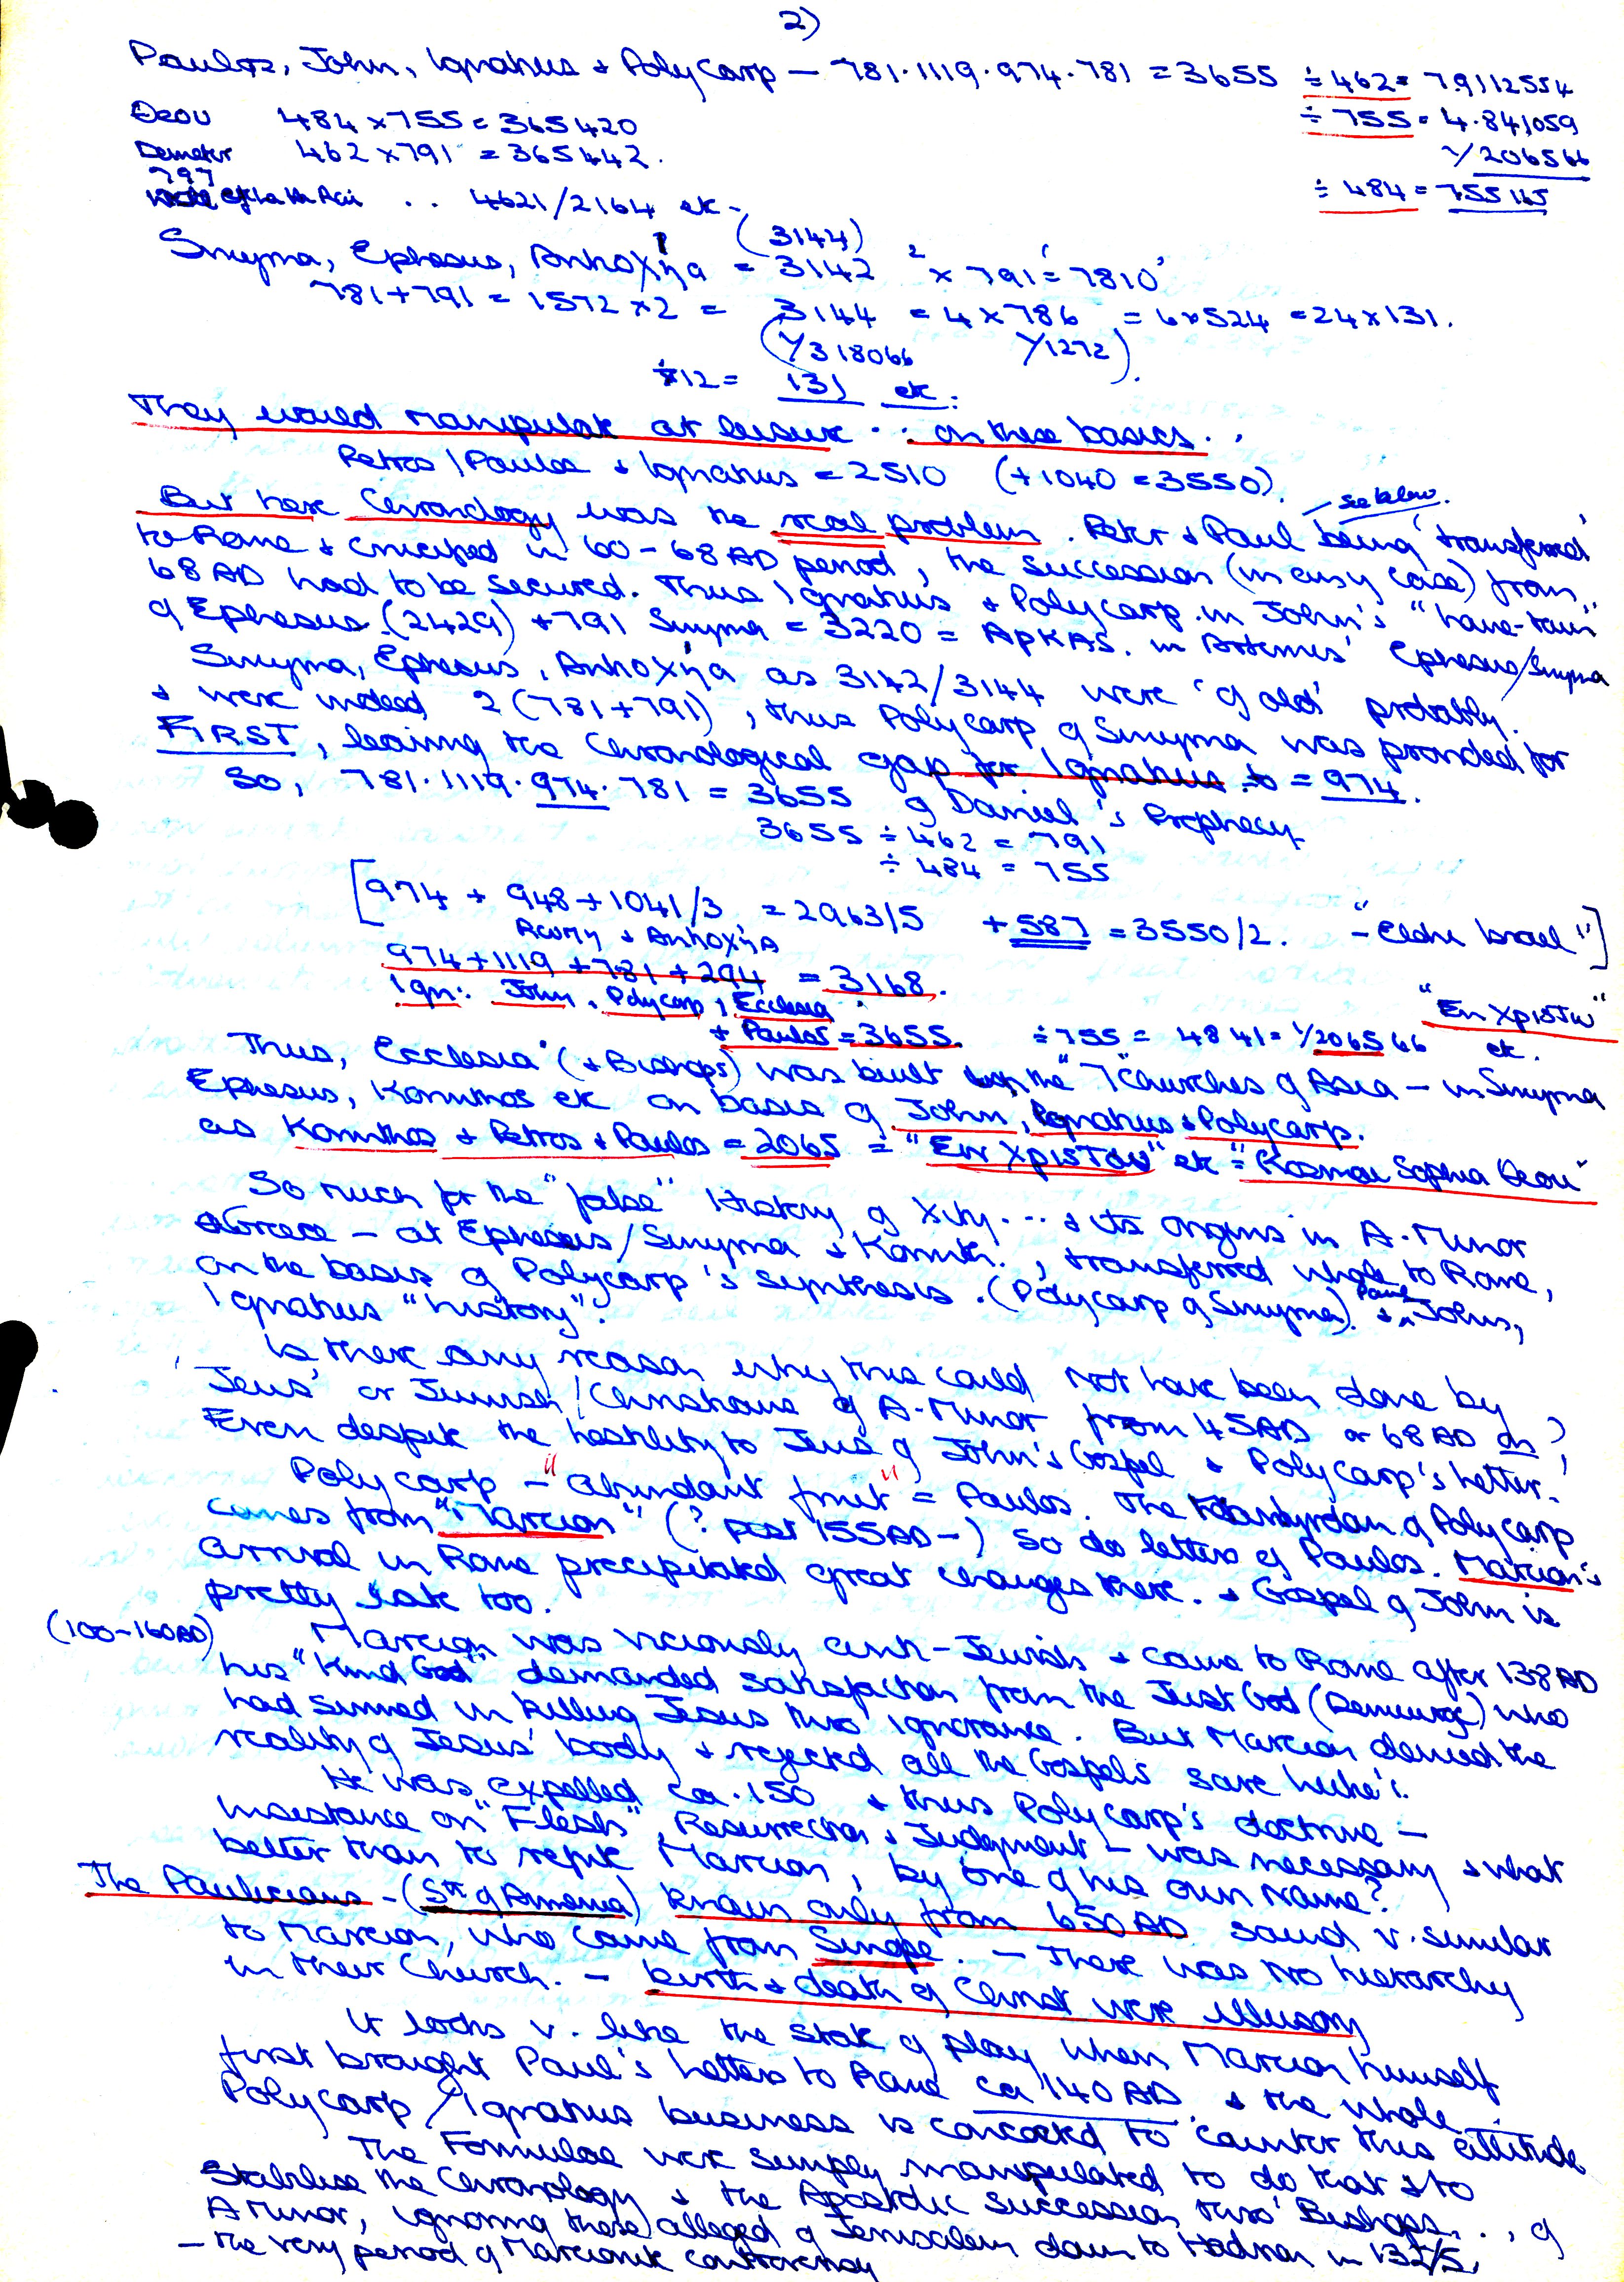 2)
Paulos, John, Ignatius & PolyCarp — 781·1119·974·781 = 3655 ÷ 462 = 7.9112554
÷ 755 = 4.841059
Θεου 484 x 755 = 365420
1/206566
Demeter 462 x 791 = 365442.
797
÷ 484 = 755165
. . 4621/2164 etc -
(3144)
Smyrna, Ephesus, Antioxiηa = 3142 2 x 791 = '7810'
781+791 = 1572 x 2 = 3144 = 4 x 786 = 6 x 524 = 24 x 131.
(1/318066 1/1272).
÷12 = 131 etc:
They would manipulate at leisure . . on these basics . .
Petros / Paulos & Ignatius = 2510 (+1040 = 3550).
— see below.
But here Chronology was the real problem. Peter & Paul being 'transferred'
to Rome & crucified in 60-68 AD period, the succession (in any case) from
68 AD had to be secured. Thus Ignatius & Polycarp in John's "home-town"
of Ephesus (2429) + 791 Smyrna = 3220 = ApKAS. in Artemis' Ephesus/Smyrna
Smyrna, Ephesus, Antioxiηa as 3142/3144 were 'of old' probably.
& were indeed 2 (781+791), thus Polycarp of Smyrna was provided for
FIRST, leaving the Chronological gap for Ignatius to = 974.
So, 781·1119·974·781 = 3655 of Daniel's Prophecy
3655 ÷ 462 = 791
÷ 484 = 755
[974 + 948 + 1041/3 = 2963/5 + 587 = 3550/2. — "Elohe Israel"]
& Antioxiηa
974+1119+781+294 = 3168.
Ign: John, Polycarp, Ecclesia
"En Xpistw"
+ Paulos = 3655. ÷ 755 = 4841 = 1/206566 etc.
Thus, Ecclesia (& Bishops) was built upon the "7 churches of Asia — in Smyrna
Ephesus, Korinthos etc on basis of John, Ignatius & Polycarp.
as Korinthos & Petros & Paulos = 2065 = "Ein XpisTou" etc = "Kosmou Sophia Θeou"
So much for the "false" History of Xity . . . & its origins in A. Minor
& Greece — at Ephesus/Smyrna & Korinth., transferred whole to Rome,
on the basis of Polycarp's synthesis. (Polycarp of Smyrna). & Paul Johns,
Ignatius "history".
Is there any reason why this could not have been done by
'Jews' or Jewish/Christians of A. Minor from 45AD or 68 AD on?
Even despite the hostility to Jews of John's Gospel & Polycarp's letter.
Polycarp — "abundant fruit" = Paulos. The Martyrdom of Polycarp
comes from "Marcion" (? post 155AD —) so do letters of Paulos. Marcion's
arrival in Rome precipitated great changes there. & Gospel of John is
pretty late too.
(100-160AD) Marcion was viciously anti-Jewish & came to Rome after 138 AD
his "Kind God" demanded satisfaction from the Just God (Demiurge) who
had sinned in killing Jesus thro' ignorance. But Marcion denied the
reality of Jesus' body & rejected all the Gospels save Luke's.
He was expelled ca. 150 & thus Polycarp's doctrine —
insistence on "Flesh", Resurrection & Judgment — was necessary & what
better than to refute Marcion, by one of his own name?
The Paulicians — (Sth of Armenia) known only from 650 AD sound v. similar
to Marcion, who came from Sinope. — There was no hierarchy
in their Church. — birth & death of Christ were illusory
It looks v. like the state of play when Marcion himself
first brought Paul's letters to Rome ca 140 AD. & the whole
Polycarp / Ignatius business is concocted to counter this attitude
The Formulae were simply manipulated to do that & to
Stabilise the Chronology & the Apostolic succession thro' Bishops . . , of
A Minor, ignoring those alleged of Jerusalem down to Hadrian in 132/5,
— the very period of Marcionite controversy